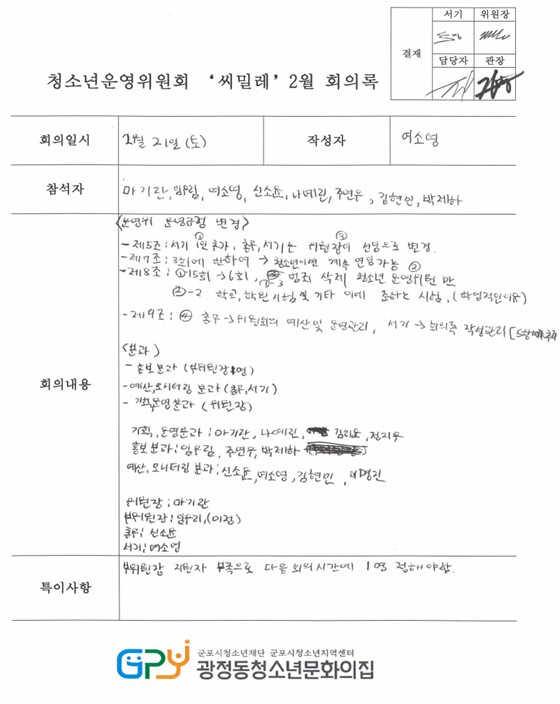 결재
서기 위원장
담당자 관장
청소년운영위원회 '씨밀레' 2월 회의록
회의일시 2월 21일 (토) 작성자 여소영
참석자 마기란, 임유림, 여소영, 신소윤, 나예린, 주연우, 김현인, 박제하
회의내용
<운영위 운영규정 변경>
- 제5조: 서기 1인 추가, 총무, 서기는 위원장이 선임으로 변경. ① ③
- 제7조: 3회에 한하여 → 청소년이면 계속 연임가능 ②
- 제8조: ①15회 → 6회, ②-3 멈춰 삭제 청소년 운영위원만
②-2 학교, 학원시험 및 기타 이에 준하는 시험, (학업적인이유)
- 제9조: ④ 총무 → 위원회의 예산 및 운영관리, 서기 → 회의록 작성관리
<분과>
- 홍보분과 (부위원장
- 예산, 모니터링 분과 (총무, 서기)
- 기획, 운영분과 (위원장)
기획, 운영분과: 마기란, 나예린, 김리윤, 정지우
홍보분과: 임유림, 주연우, 박제하
예산, 모니터링 분과: 신소윤, 여소영, 김현인,
위원장: 마기란
부위원장: 임유림, (미정)
총무: 신소윤
서기: 여소영
특이사항 부위원장 지원자 부족으로 다음 회의시간에 1명 정해야함.
GPY
군포시청소년재단 군포시청소년지역센터
광정동청소년문화의집